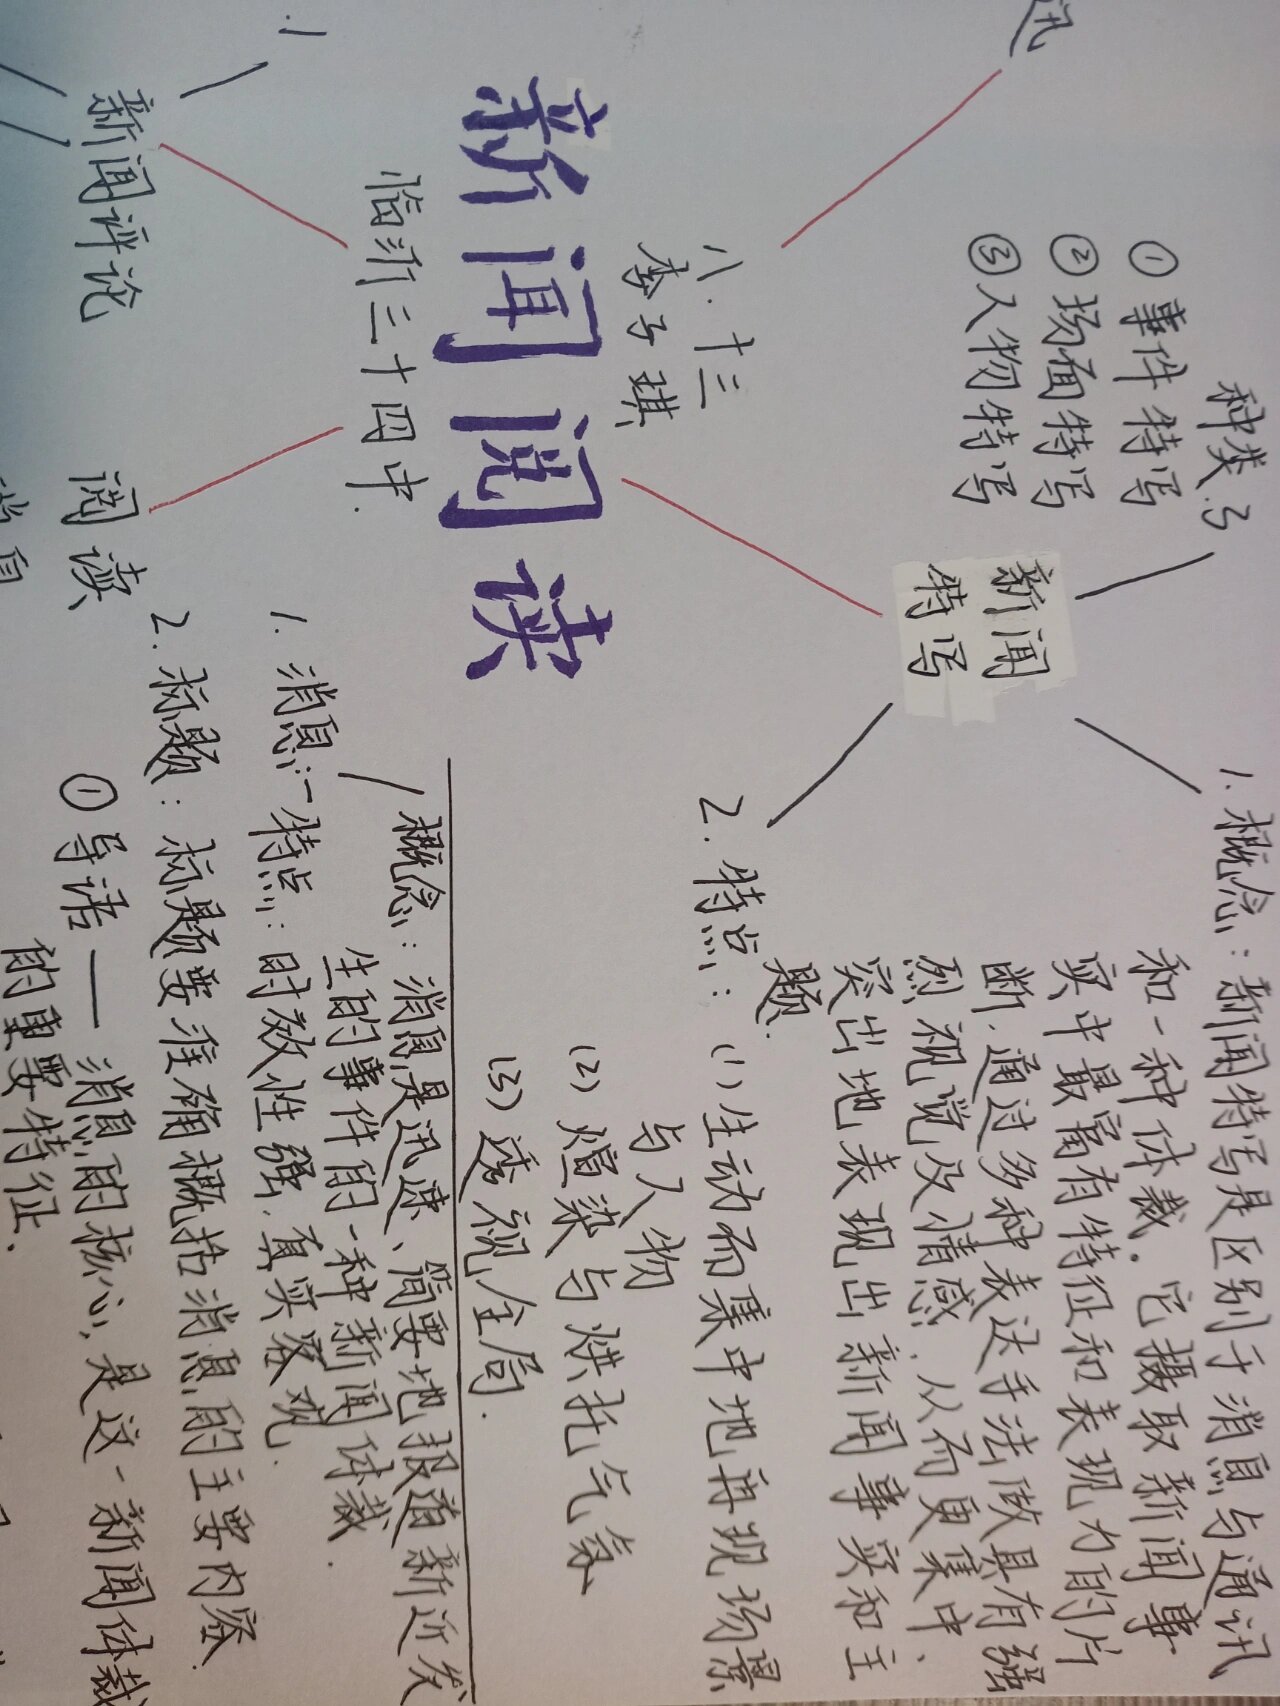 讯
种类.3
① 事件特写
② 场面特写
③ 人物特写
新闻
特写
1. 概念：新闻特写是区别于消息与通讯
和一种体裁。它摄取新闻事
实中最富有特征和表现力的片
断.通过多种表达手法做具有强
烈视觉及情感.从而更集中、
突出地表现出新闻事实和主
题.
2. 特点：(1) 生动而集中地再现场景
与人物
(2) 渲染与烘托气氛
(3) 透视全局.
八.十三
李子琪
新闻阅读
临沂三十四中.
新闻评论
1.
阅读
概念：消息是迅速、简要地报道新近发
生的事件的一种新闻体裁.
1. 消息：特点：时效性强.真实客观.
2. 标题：标题要准确概括消息的主要内容.
① 导语——消息的核心,是这一新闻体裁
的重要特征.
消息